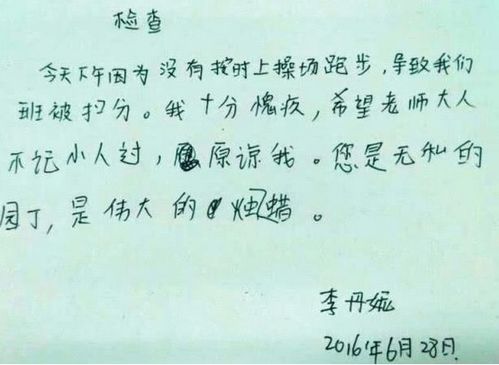 检查
今天下午因为没有按时上操场跑步，导致我们
班被扣分。我十分愧疚，希望老师大人
不记小人过，原谅我。您是无私的
园丁，是伟大的烛蜡。
李丹妮
2016年6月28日